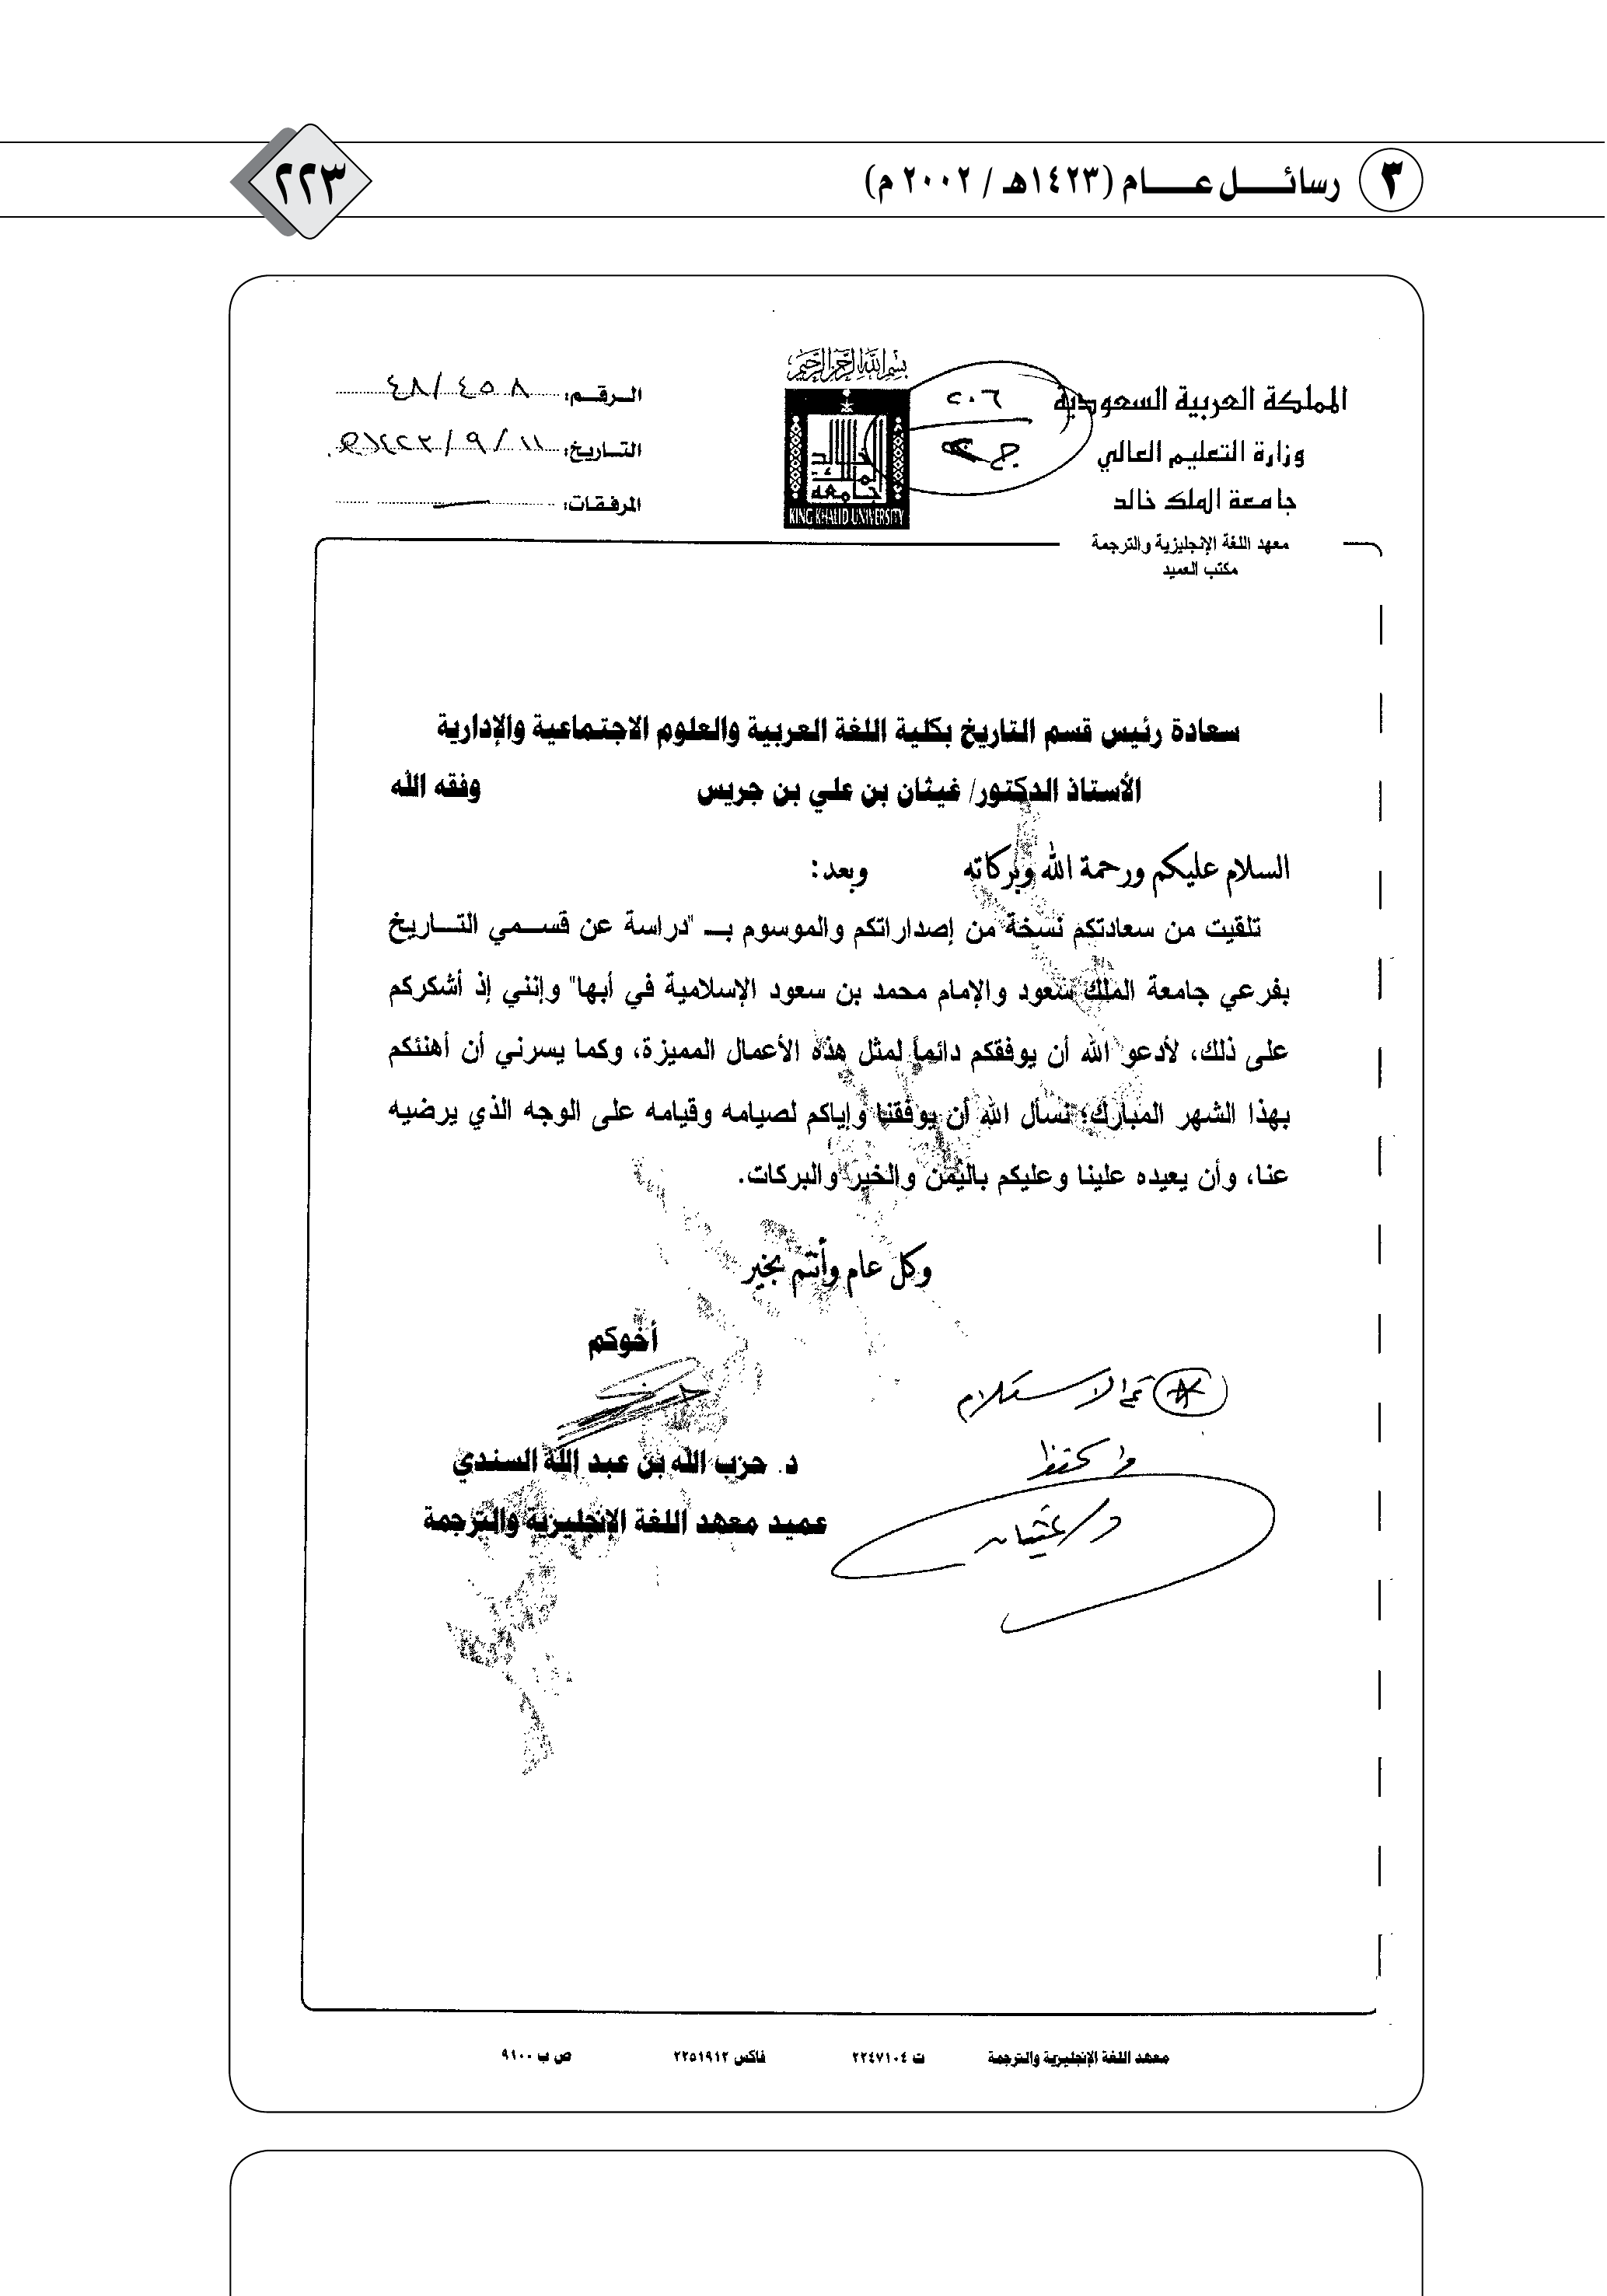 ٣ رسائل عام (١٤٢٣هـ / ٢٠٠٢ م)
٢٢٣
بسم الله الرحمن الرحيم
المملكة العربية السعودية
وزارة التعليم العالي
جامعة الملك خالد
معهد اللغة الإنجليزية والترجمة
مكتب العميد
٢٠٦
جامعة الملك خالد
KING KHALID UNIVERSITY
الرقم: ٤٨/٤٥٨
التاريخ: ١١/٩/١٤٢٣هـ
المرفقات:
سعادة رئيس قسم التاريخ بكلية اللغة العربية والعلوم الاجتماعية والإدارية
الأستاذ الدكتور/ غيثان بن علي بن جريس وفقه الله
السلام عليكم ورحمة الله وبركاته وبعد:
تلقيت من سعادتكم نسخة من إصداراتكم والموسوم بـ "دراسة عن قسمي التاريخ
بفرعي جامعة الملك سعود والإمام محمد بن سعود الإسلامية في أبها" وإنني إذ أشكركم
على ذلك، لأدعو الله أن يوفقكم دائماً لمثل هذه الأعمال المميزة، وكما يسرني أن أهنئكم
بهذا الشهر المبارك؛ نسأل الله أن يوفقنا وإياكم لصيامه وقيامه على الوجه الذي يرضيه
عنا، وأن يعيده علينا وعليكم باليمن والخير والبركات.
وكل عام وأنتم بخير
أخوكم
د. حزب الله بن عبد الله السندي
عميد معهد اللغة الإنجليزية والترجمة
تم الاستلام
د/ غيثان
معهد اللغة الإنجليزية والترجمة ت ٢٢٤٧١٠٤ فاكس ٢٢٥١٩١٢ ص ب ٩١٠٠